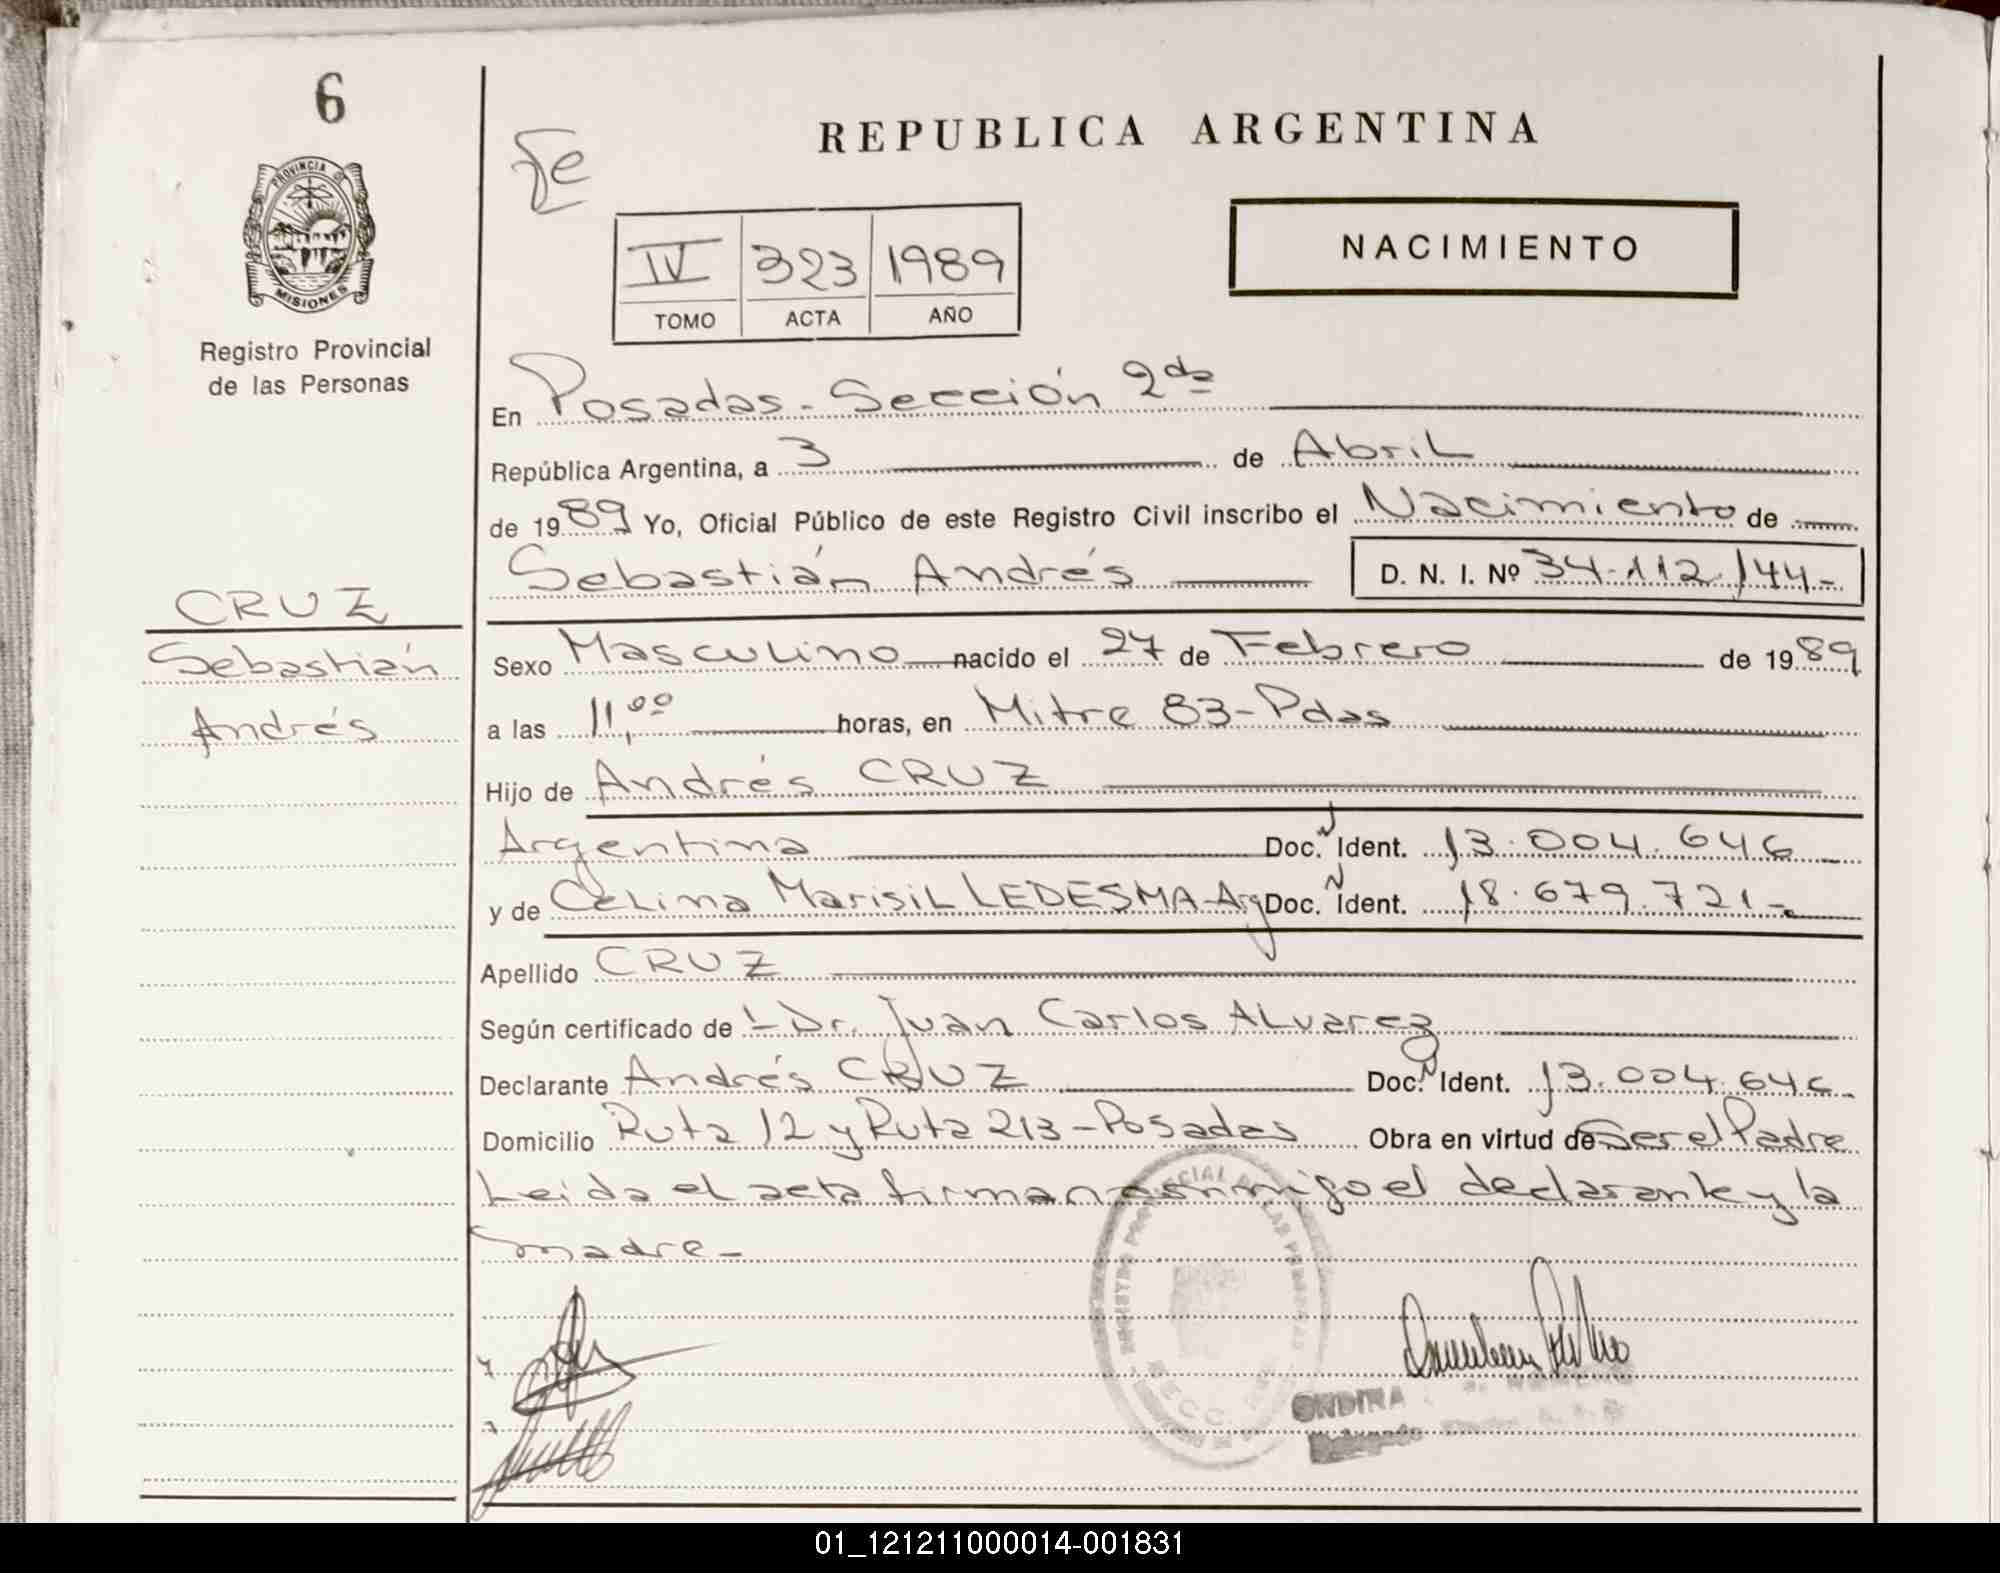 6
PROVINCIA DE
MISIONES
Registro Provincial
de las Personas
REPUBLICA ARGENTINA
NACIMIENTO
IV 323 1989
TOMO ACTA AÑO
En Posadas - Sección 2da
República Argentina, a 3 de Abril
de 1989 Yo, Oficial Público de este Registro Civil inscribo el Nacimiento de
Sebastián Andrés D. N. I. Nº 34.112.144-
CRUZ
Sebastián
Andrés
Sexo Masculino nacido el 27 de Febrero de 1989
a las 11,00 horas, en Mitre 83 - Pdas
Hijo de Andrés CRUZ
Argentina Doc. Ident. 13.004.646
y de Celina Marisil LEDESMA - Arg Doc. Ident. 18.679.721-
Apellido CRUZ
Según certificado de L Dr. Juan Carlos Alvarez
Declarante Andrés CRUZ Doc. Ident. 13.004.646
Domicilio Ruta 12 y Ruta 213 - Posadas Obra en virtud de Ser el Padre
Leida el acta firman conmigo el declarante y la
madre -
REGISTRO PROVINCIAL DE LAS PERSONAS
SECC.
ONDINA
01_121211000014-001831